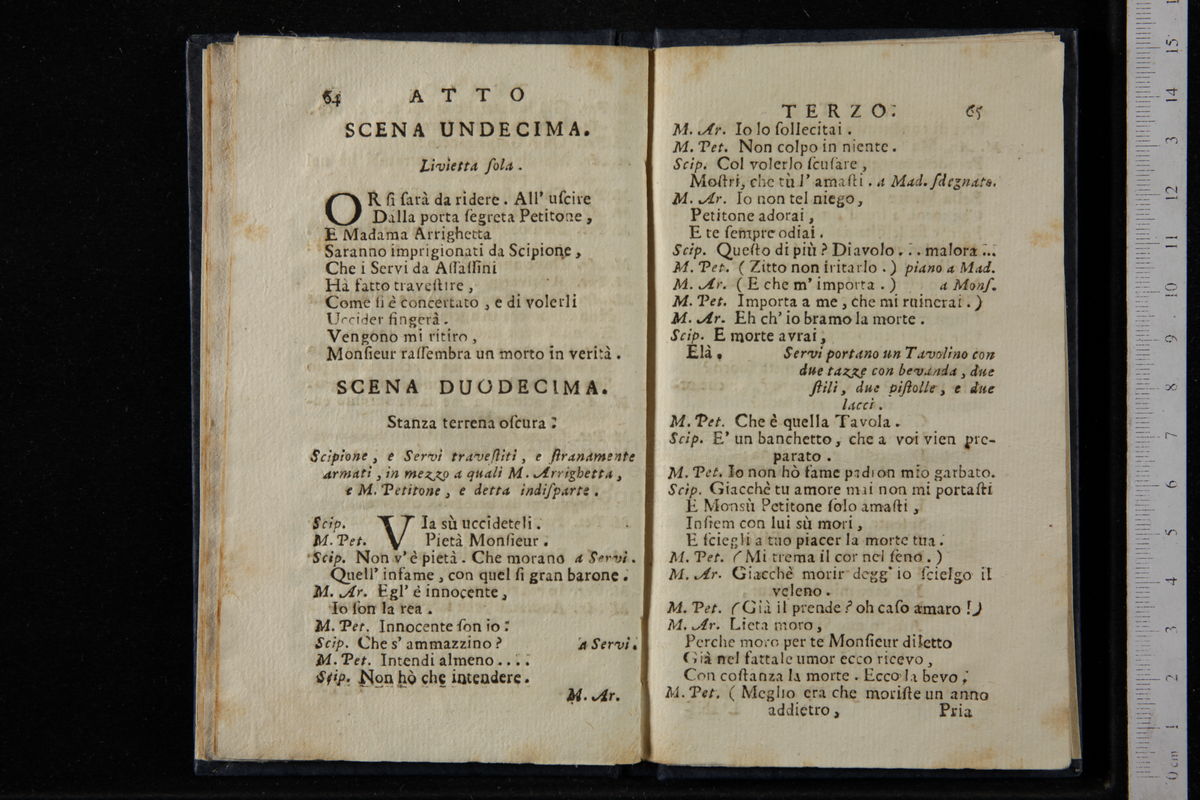 64 ATTO
SCENA UNDECIMA.
Livietta ſola.
OR ſi ſarà da ridere. All' uſcire
Dalla porta ſegreta Petitone,
E Madama Arrighetta
Saranno imprigionati da Scipione,
Che i Servi da Aſſaſſini
Hà fatto traveſtire,
Come ſi è concertato, e di volerli
Uccider fingerà.
Vengono mi ritiro,
Monſieur raſſembra un morto in verità.
SCENA DUODECIMA.
Stanza terrena oſcura:
Scipione, e Servi traveſtiti, e ſtranamente
armati, in mezzo a quali M. Arrighetta,
e M. Petitone, e detta indiſparte.
Scip. VIa sù uccideteli.
M. Pet. Pietà Monſieur.
Scip. Non v' è pietà. Che morano a Servi.
Quell' infame, con quel ſi gran barone.
M. Ar. Egl' è innocente,
Io ſon la rea.
M. Pet. Innocente ſon io:
Scip. Che s' ammazzino? a Servi.
M. Pet. Intendi almeno....
Scip. Non hò che intendere.
M. Ar.
TERZO. 65
M. Ar. Io lo ſollecitai.
M. Pet. Non colpo in niente.
Scip. Col volerlo ſcuſare,
Moſtri, che tù l' amaſti. a Mad. ſdegnato.
M. Ar. Io non tel niego,
Petitone adorai,
E te ſempre odiai.
Scip. Queſto di più? Diavolo... malora...
M. Pet. (Zitto non iritarlo.) piano a Mad.
M. Ar. (E che m' importa.) a Monſ.
M. Pet. Importa a me, che mi ruinerai.)
M. Ar. Eh ch' io bramo la morte.
Scip. E morte avrai,
Elà. Servi portano un Tavolino con
due tazze con bevanda, due
ſtili, due piſtolle, e due
lacci.
M. Pet. Che è quella Tavola.
Scip. E' un banchetto, che a voi vien pre-
parato.
M. Pet. Io non hò fame padron mio garbato.
Scip. Giacchè tu amore mai non mi portaſti
E Monsù Petitone ſolo amaſti,
Inſiem con lui sù mori,
E ſciegli a tuo piacer la morte tua.
M. Pet. (Mi trema il cor nel ſeno.)
M. Ar. Giacchè morir degg' io ſcielgo il
veleno.
M. Pet. (Già il prende? oh caſo amaro!)
M. Ar. Lieta moro,
Perche moro per te Monſieur diletto
Già nel fattale umor ecco ricevo,
Con coſtanza la morte. Ecco la bevo;
M. Pet. (Meglio era che moriſte un anno
addietro, Pria